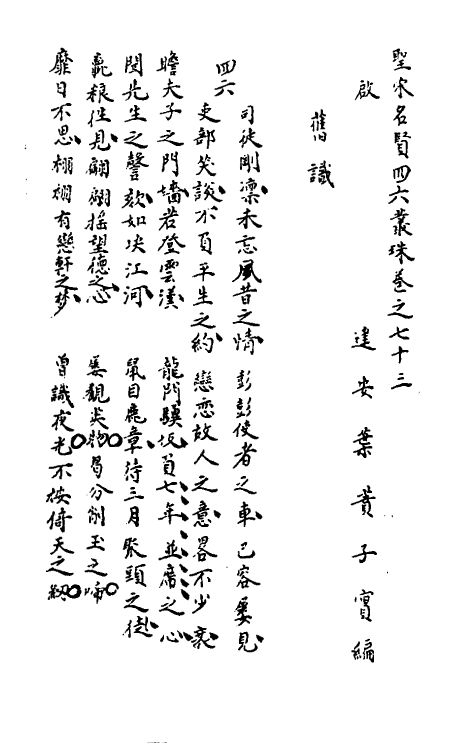 聖宋名賢四六叢珠卷之七十三
建安葉蕡子實編
啟
舊識
四六
司徒剛凛未忘風昔之情 彭彭使者之車已容屢見
吏部笑談不負平生之約 戀戀故人之意畧不少衰
瞻夫子之門墻若登雲漢 龍門驥坂負七年並席之心
閔先生之謦欬如决江河 鼠目麂章待三月聚頭之徒
麤粮性見翩翩摇望德之心 屡觀尖物曷分削玉之啼
靡日不思栩栩有戀軒之梦 曽識夜光不按倚天之劒